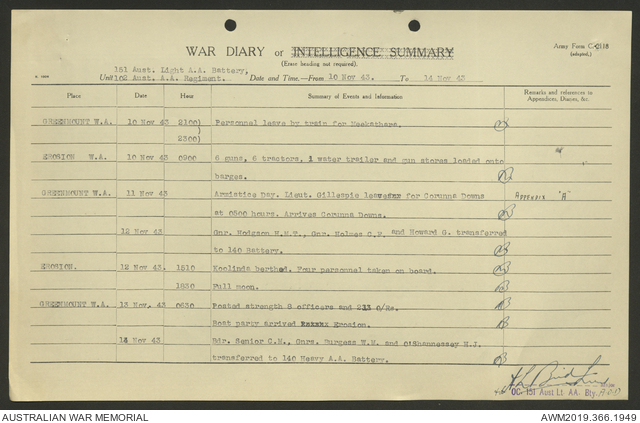 WAR DIARY or INTELLIGENCE SUMMARY
Army Form C-2118
(adapted.)
(Erase heading not required).
151 Aust. Light A.A. Battery,
Unit 102 Aust. A.A. Regiment. Date and Time.—From 10 Nov 43. To 14 Nov 43
Place Date Hour Summary of Events and Information Remarks and references to Appendices, Diaries, &c.
GREENMOUNT W.A. 10 Nov 43 2100) Personnel leave by train for Meekathara.
)
2300)
EROSION W.A. 10 Nov 43 0900 6 guns, 6 tractors, 1 water trailer and gun stores loaded onto
barges.
GREENMOUNT W.A. 11 Nov 43 Armistice Day. Lieut. Gillespie leaves for Corunna Downs APPENDIX "A"
at 0500 hours. Arrives Corunna Downs.
12 Nov 43 Gnr. Hodgson H.M.T., Gnr. Holmes C.F. and Howard G. transferred
to 140 Battery.
EROSION. 12 Nov 43 1510 Koolinda berthed. Four personnel taken on board.
1830 Full moon.
GREENMOUNT W.A. 13 Nov. 43 0630 Posted strength 8 officers and 213 O/Rs.
Boat party arrived Erosion.
14 Nov 43 Bdr. Senior C.N., Gnrs. Burgess W.W. and O'Shannessey H.J.
transferred to 140 Heavy A.A. Battery.
OC. 151 Aust Lt. AA. Bty.
AUSTRALIAN WAR MEMORIAL AWM2019.366.1949